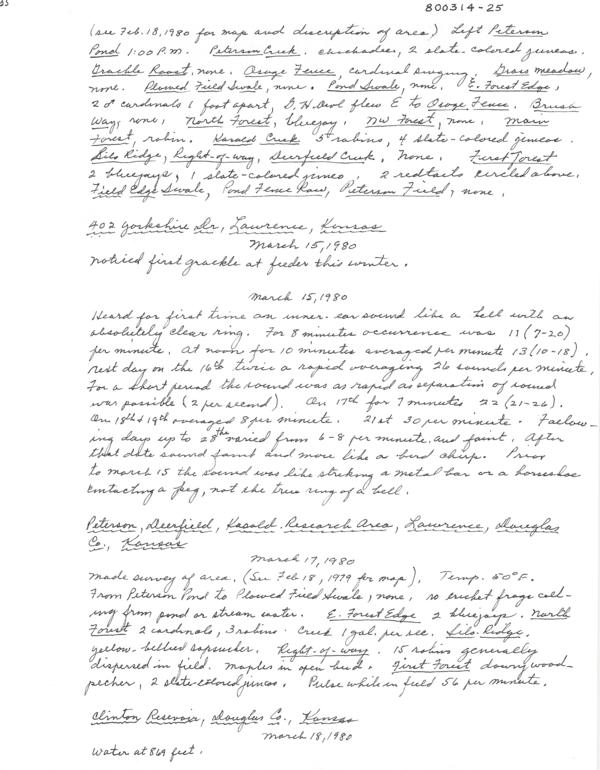 35
800314-25
(see Feb. 18, 1980 for map and discription of area) Left Peterson
Pond 1:00 P.M. Peterson Creek. chickadees, 2 slate-colored juncos.
Grackle Roost, none. Osage Fence, cardinal singing. Grass meadow,
none. Plowed Field Swale, none. Pond Swale, none. E. Forest Edge,
2 ♂ cardinals 1 foot apart, G. H. Owl flew E to Osage Fence. Brush
Way, none, North Forest, bluejay. NW Forest, none, Main
Forest, robin. Kasold Creek 5 robins, 4 slate-colored juncos.
Silo Ridge, Right-of-way, Deerfield Creek, None. First Forest
2 bluejays, 1 slate-colored junco, 2 redtails circled above.
Field Edge Swale, Pond Fence Row, Peterson Field, none.
402 Yorkshire Dr, Lawrence, Kansas
March 15, 1980
Noticed first grackle at feeder this winter.
March 15, 1980
Heard for first time an inner-ear sound like a bell with an
absolutely clear ring. For 8 minutes occurrence was 11 (7-20)
per minute. At noon for 10 minutes averaged per minute 13 (10-18).
next day on the 16th twice a rapid averaging 26 sounds per minute.
For a short period the sound was as rapid as separation of sound
was possible (2 per second). On 17th for 7 minutes 22 (21-26).
On 18th & 19th averaged 8 per minute. 21st 30 per minute. Follow-
ing days up to 28th varied from 6-8 per minute and faint. After
that date sound faint and more like a bird chirp. Prior
to march 15 the sound was like striking a metal bar or a horseshoe
contacting a peg, not the true ring of a bell.
Peterson, Deerfield, Kasold Research Area, Lawrence, Douglas
Co., Kansas
March 17, 1980
Made survey of area. (See Feb 18, 1979 for map). Temp. 50°F.
From Peterson Pond to Plowed Field Swale, none, no cricket frogs call-
ing from pond or stream water. E. Forest Edge 2 bluejays. North
Forest 2 cardinals, 3 robins. Creek 1 gal. per sec. Silo Ridge.
yellow-bellied sapsucker. Right-of-way. 15 robins generally
dispersed in field. maples in open bud. First Forest downy wood-
pecher, 2 slate-colored juncos. Pulse while in field 56 per minute.
Clinton Reservoir, Douglas Co., Kansas
March 18, 1980
Water at 869 feet.